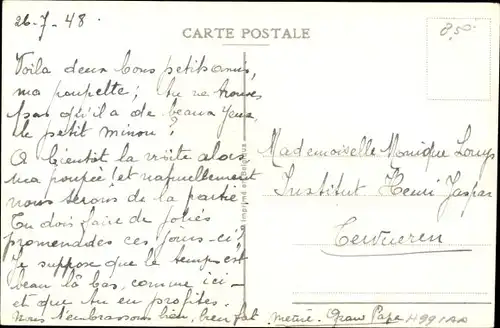 26-7-48.
CARTE POSTALE
8,50
Voila deux bons petits amis,
ma poupette; tu ne trouves
pas qu'il a de beaux yeux,
le petit minou?
A bientôt la visite alors
ma poupée! et naturellement
nous serons de la partie
Tu dois faire de jolies
promenades ces jours-ci?
Je suppose que le temps est
beau là bas, comme ici -
et que tu en profites.
Nous t'embrassons bien, bien fort
Mademoiselle Monique Louys
Institut Henri Jaspar
Tervueren
Imprimé en Belgique